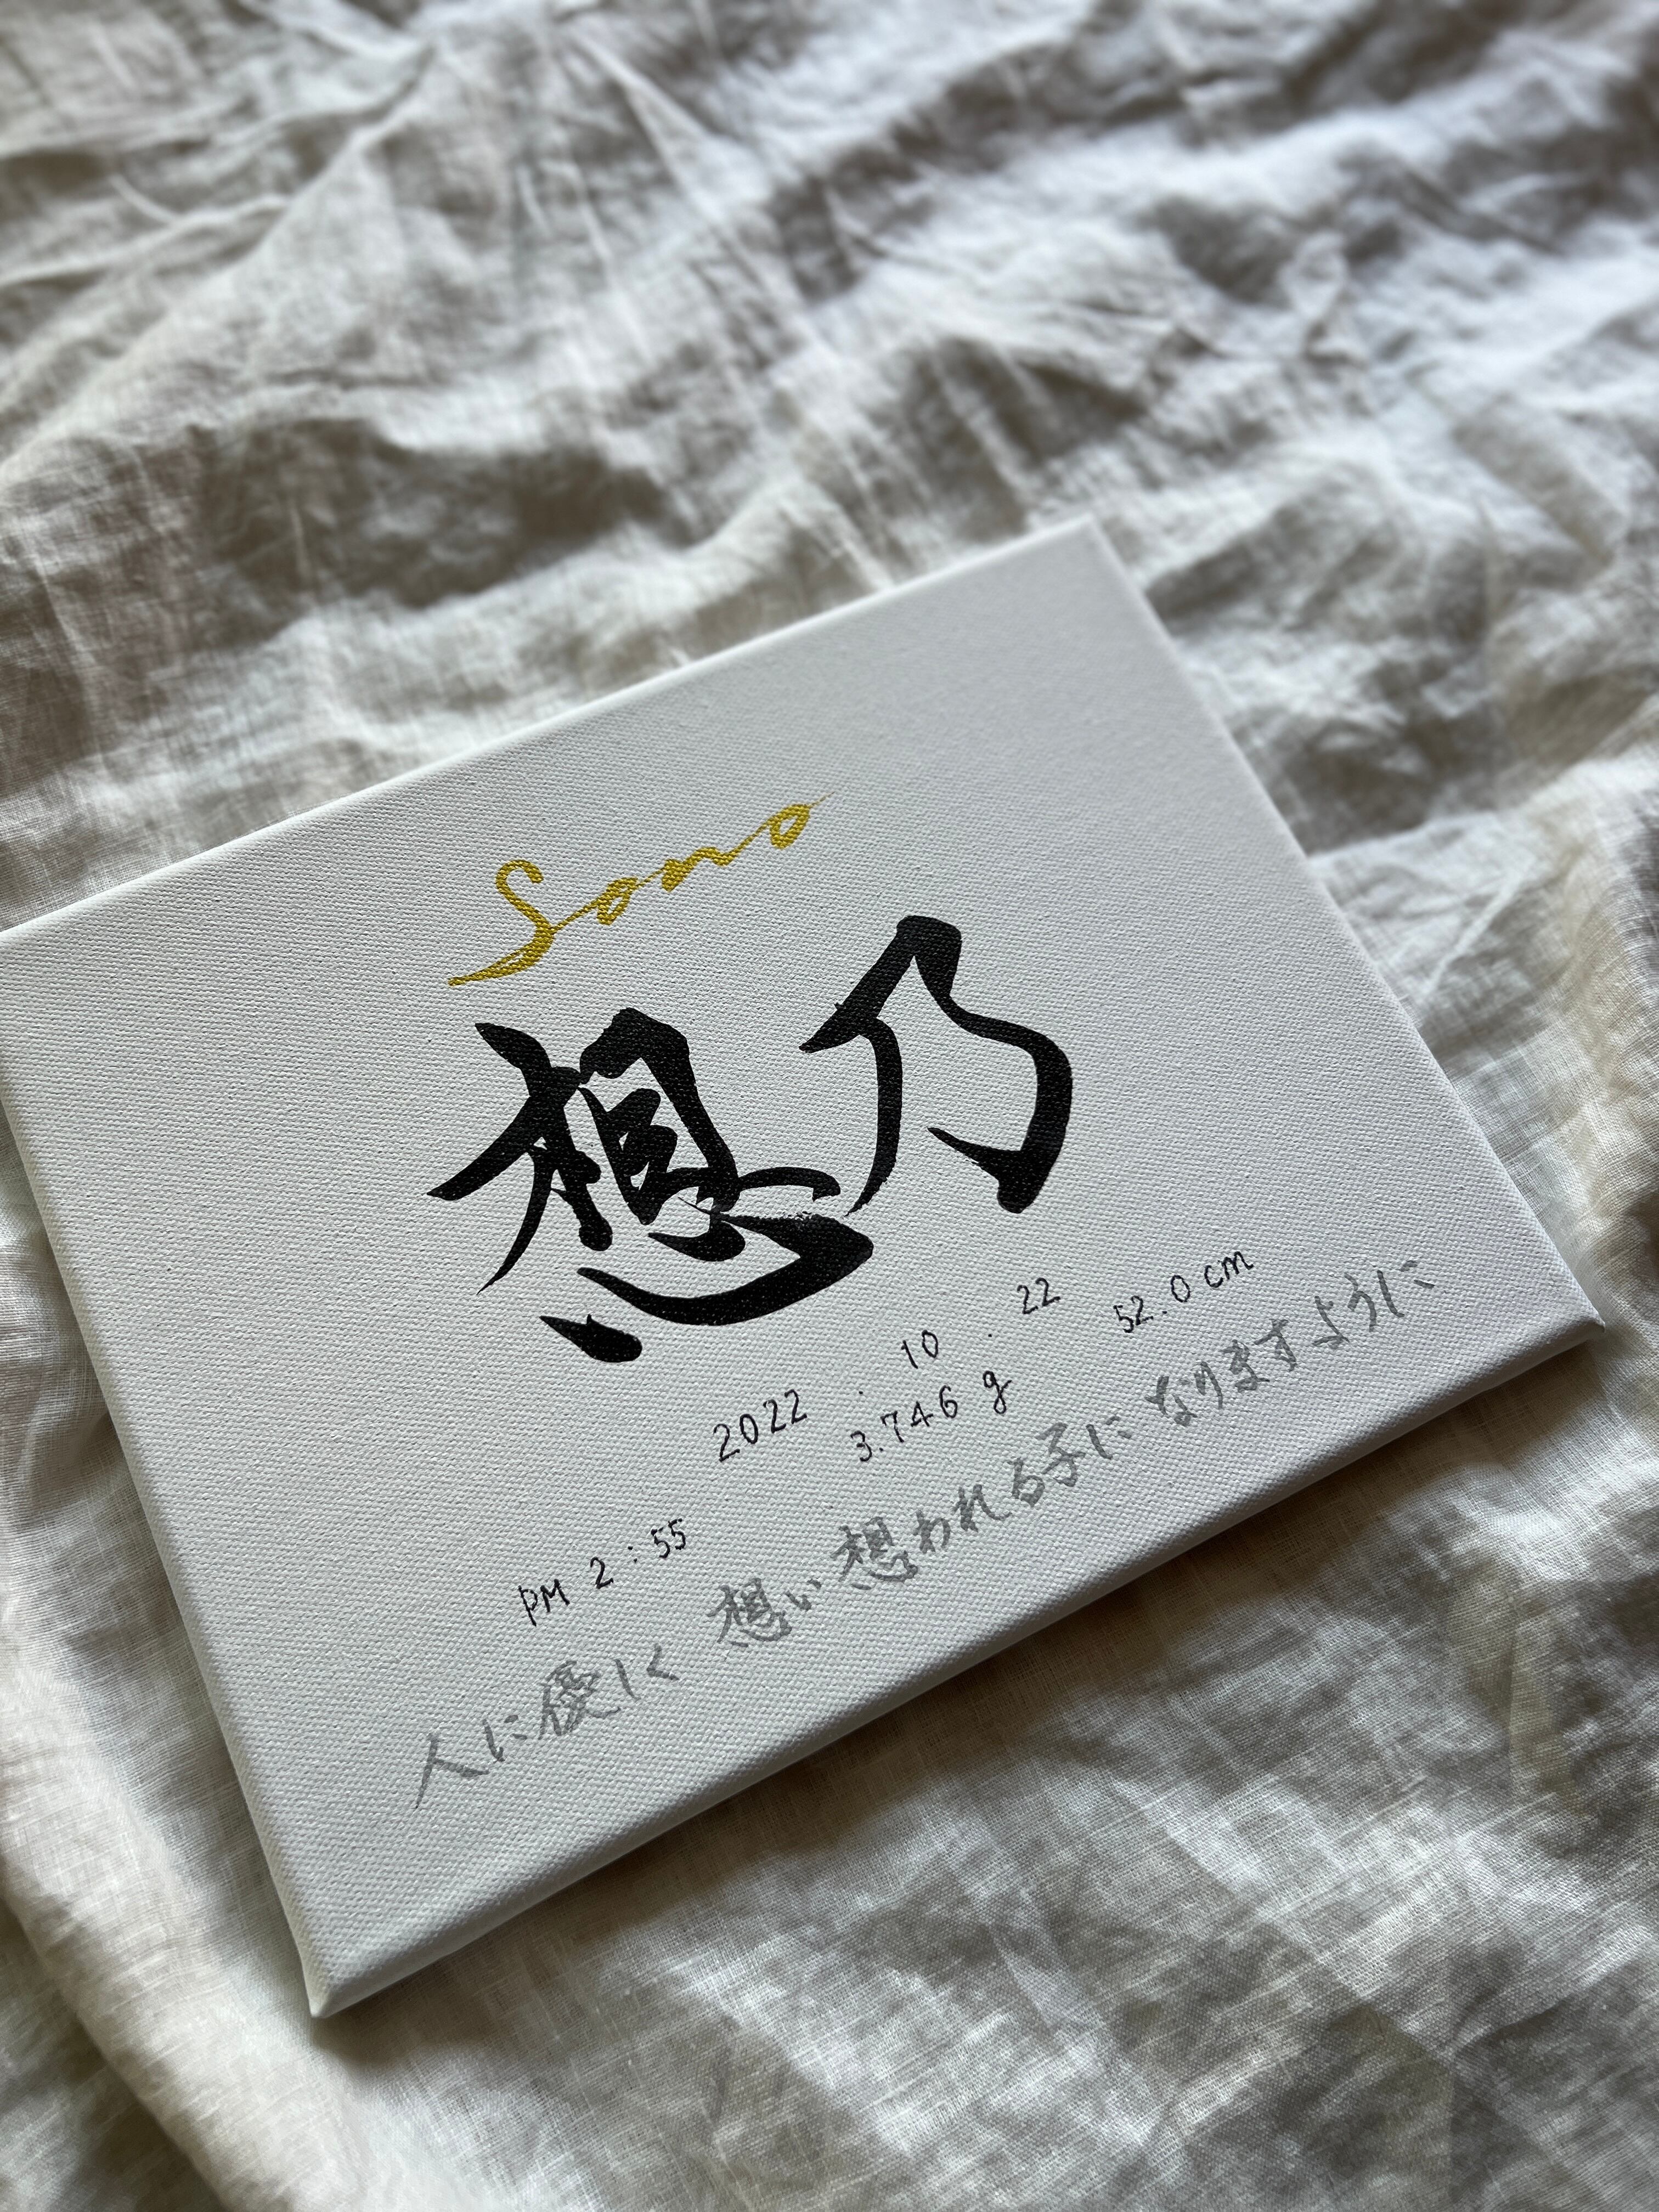 Sono
想乃
2022 . 10 . 22
PM 2:55 3.746 g 52.0 cm
人に優しく 想い想われる子になりますように